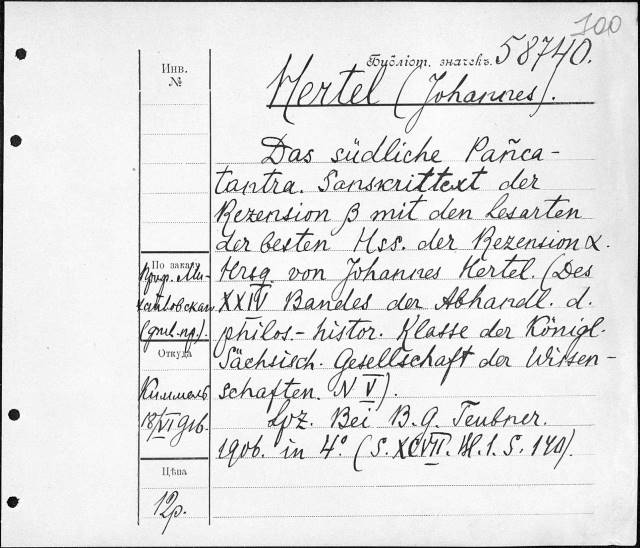 100
Библіот. значекъ. 58740.
Hertel (Johannes).
Das südliche Pañca-
tantra. Sanskrittext der
Rezension β mit den Lesarten
der besten Hss. der Rezension α.
Hrsg. von Johannes Hertel. (Des
XXIV Bandes der Abhandl. d.
philos.-histor. Klasse der Königl.
Sächsisch. Gesellschaft der Wissen-
schaften. N V).
Lpz. Bei B. G. Teubner.
1906. in 4° (S. XCVII. Bl. 1. S. 140).
Инв.
№
По заказу
Откуда
Киммель
18/VI 916.
Цѣна
12р.